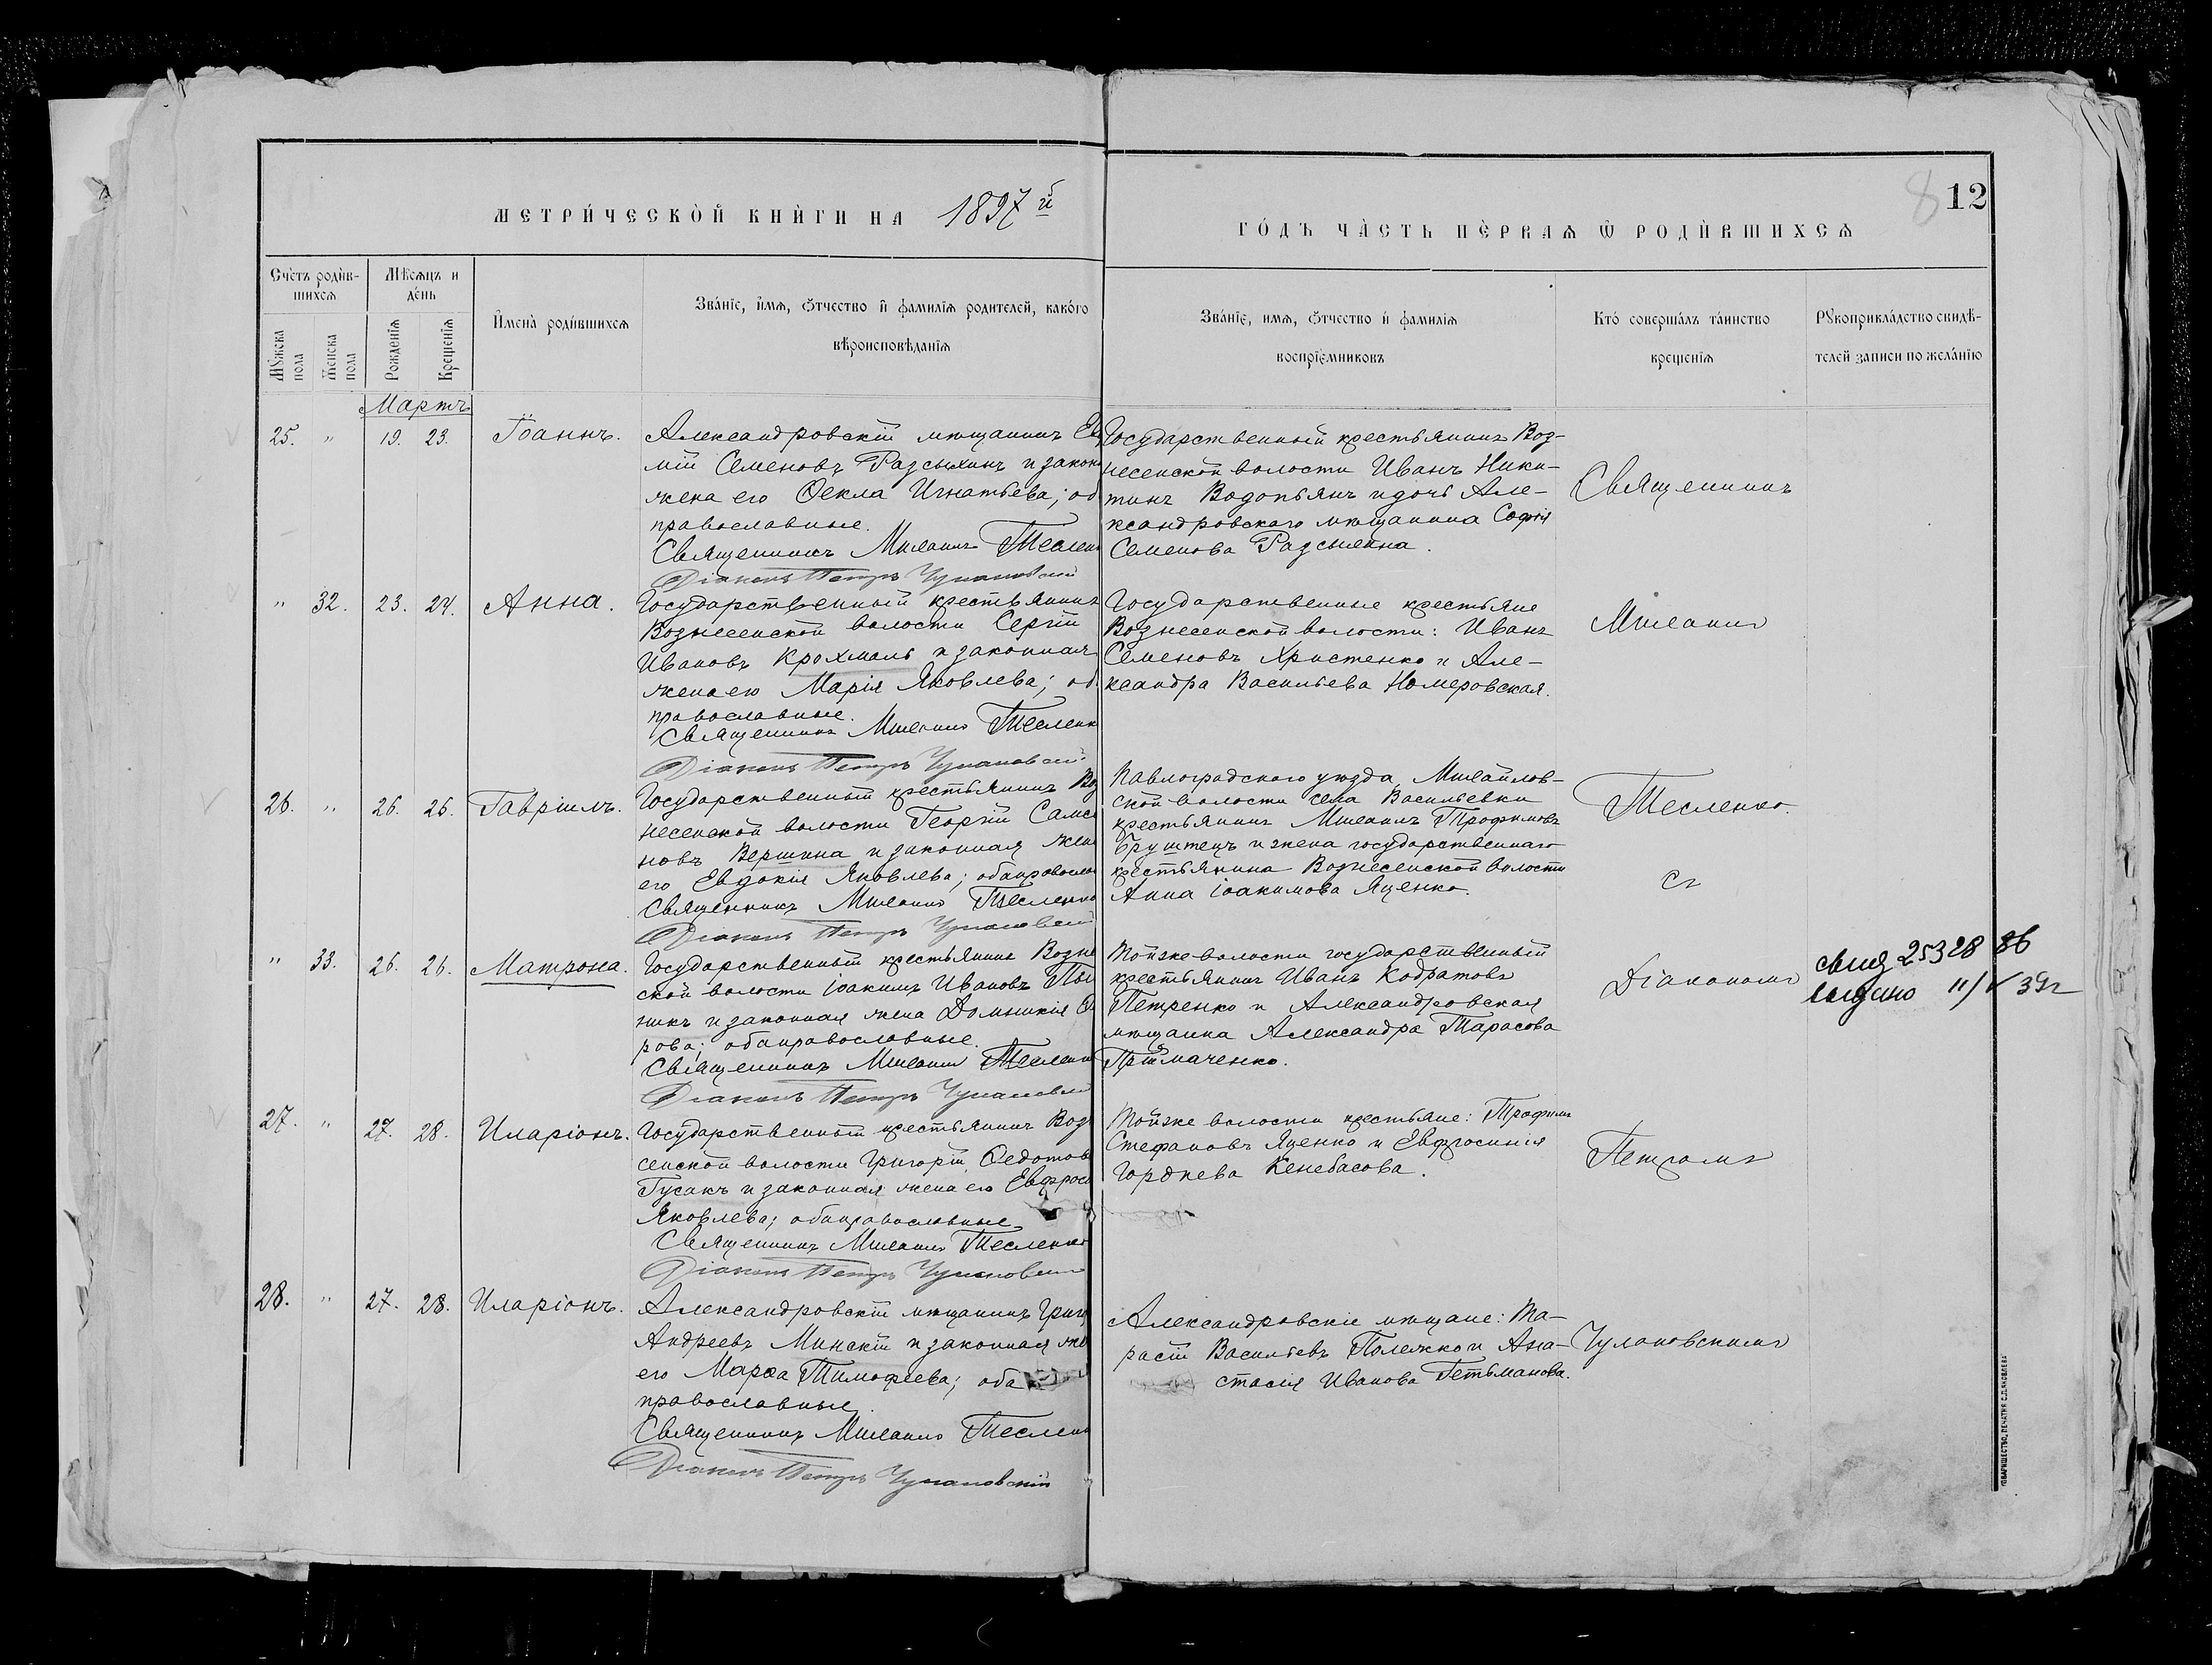 МЕТРИЧЕСКОЙ КНИГИ НА 1897 й
ГОДЪ ЧАСТЬ ПЕРВАЯ Ѡ РОДИВШИХСЯ
8 12
Счетъ родив-
шихся
Мѣсяцъ и
день
Мꙋжска
пола
Женска
пола
Рожденія
Крещенія
Имена родившихся
Званіе, имя, ѻтчество и фамилія родителей, какого
вѣроисповѣданія
Званіе, имя, ѻтчество и фамилія
воспріемниковъ
Кто совершалъ таинство
крещенія
Рꙋкоприкладство свидѣ-
телей записи по желанію
Мартъ
25. " 19. 23. Іоаннъ.
Александровскій мѣщанинъ Ев
мій Семеновъ Разсыхинъ и закон
жена его Ѳекла Игнатьева; об
православные.
Священникъ Михаилъ Теслен
Діаконъ Петръ Чулановскій
Государственный крестьянинъ Воз-
несенской волости Иванъ Ники-
тинъ Водопьянъ и дочь Але-
ксандровскаго мѣщанина Софія
Семенова Разсыхина.
Священникъ
" 32. 23. 24. Анна.
Государственный крестьянинъ
Вознесенской волости Сергій
Ивановъ Крохмаль и законная
жена его Марія Яковлева; об.
православные.
Священникъ Михаилъ Тесленк
Діаконъ Петръ Чулановскій
Государственные крестьяне
Вознесенской волости: Иванъ
Семеновъ Христенко и Але-
ксандра Васильева Номеровская.
Михаилъ
26. " 26. 26. Гавріилъ.
Государственный крестьянинъ Воз
несенской волости Георгій Самсо
новъ Вершина и законная жен
его Евдокія Яковлева; оба православ
Священникъ Михаилъ Тесленко
Діаконъ Петръ Чулановскій
Павлоградскаго уѣзда, Михайлов-
ской волости села Васильевки
крестьянинъ Михаилъ Трофимовъ
Бруштецъ и жена государственнаго
крестьянина Вознесенской волости
Анна Іоакимова Яценко.
Тесленко.
Съ
" 33. 26. 26. Матрона.
Государственный крестьянинъ Возне
ской волости Іоакимъ Ивановъ
никъ и законная жена Домникія
рова; оба православные.
Священникъ Михаилъ Тесленк
Діаконъ Петръ Чулановскій
Тойже волости государственный
крестьянинъ Иванъ Кодратовъ
Петренко и Александровская
мѣщанка Александра Тарасова
Приймаченко.
Діакономъ
свид 25328 86
выдано 11/V 39г
27. " 27. 28. Иларіонъ.
Государственный крестьянинъ Возн
сенской волости Григорій Ѳедотов
Гусакъ и законная жена его Евфрос
Яковлева; оба православные.
Священникъ Михаилъ Тесленко
Діаконъ Петръ Чулановскій
Тойже волости крестьяне: Трофимъ
Стефановъ Яценко и Евфросинія
Гордѣева Кенебасова.
Петромъ
28. " 27. 28. Иларіонъ.
Александровскій мѣщанинъ Григ
Андреевъ Минскій и законная же
его Марѳа Тимофеева; оба
православные.
Священникъ Михаилъ Теслен
Діаконъ Петръ Чулановскій
Александровскіе мѣщане: Та-
расій Васильевъ Полежко и Ана-
стасія Иванова Гетьманова.
Чулановскимъ
ТОВАРИЩЕСТВО „ПЕЧАТНЯ С.П.ЯКОВЛЕВА“